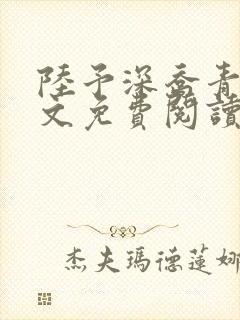 陸予深喬青
文免費閱讀
杰夫瑪德蓮娜